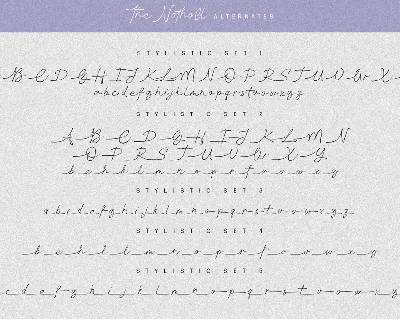 The Notholl ALTERNATES
STYLISTIC SET 1
B C D G H I J K L M N O P R S T U V W X
a b c d e f g h i j k l m n o p q r s t u v w x y z
STYLISTIC SET 2
A B C D G H I J K L M N
O P R S T U V W X Y
b h k l m n o p r t u v w x y
STYLISTIC SET 3
a b c d e f g h i j k l m n o p q r s t u v w x y z
STYLISTIC SET 4
b e h k l m n o p r t u v w x y
STYLISTIC SET 5
c d e f g h i j k l m n o p q r s t o v w x y